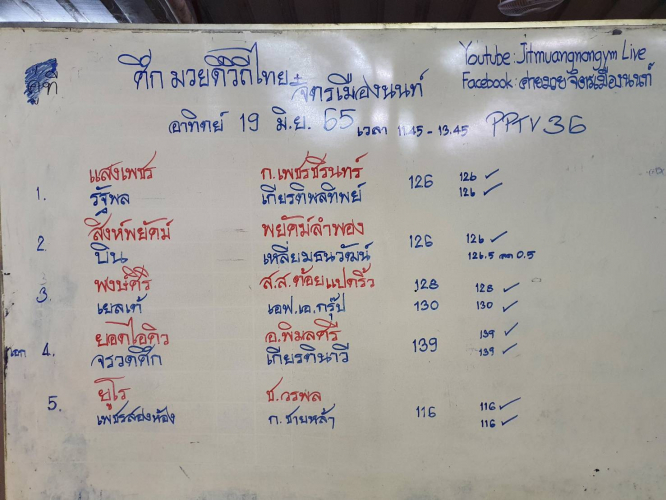 ศึก มวยดีวิถีไทย + จิตรเมืองนนท์
Youtube: Jitmuangnongym Live
Facebook: ค่ายมวยจิตรเมืองนนท์
อาทิตย์ 19 มิ.ย. 65 เวลา 11.45 - 13.45 PPTV 36
1. แสงเพชร ก.เพชรชีรินทร์ 126 126 ✓
รัฐพล เกียรติพลทิพย์ 126 ✓
2. สิงห์พยัคฆ์ พยัคฆ์ลำพอง 126 126 ✓
บิน เหลี่ยมธนวัฒน์ 126.5 ลด 0.5
3. พงษ์ศิริ ส.ส.ต้อยแปดริ้ว 128 128 ✓
เยลเต้ เอฟ.เอ.กรุ๊ป 130 130 ✓
เอก 4. ยอดไอคิว อ.พิมลศรี 139 139 ✓
จรวดศึก เกียรตินาวี 139 ✓
5. ยูโร ช.วรพล 116 116 ✓
เพชรสองห้อง ก.ชายหล้า 116 ✓